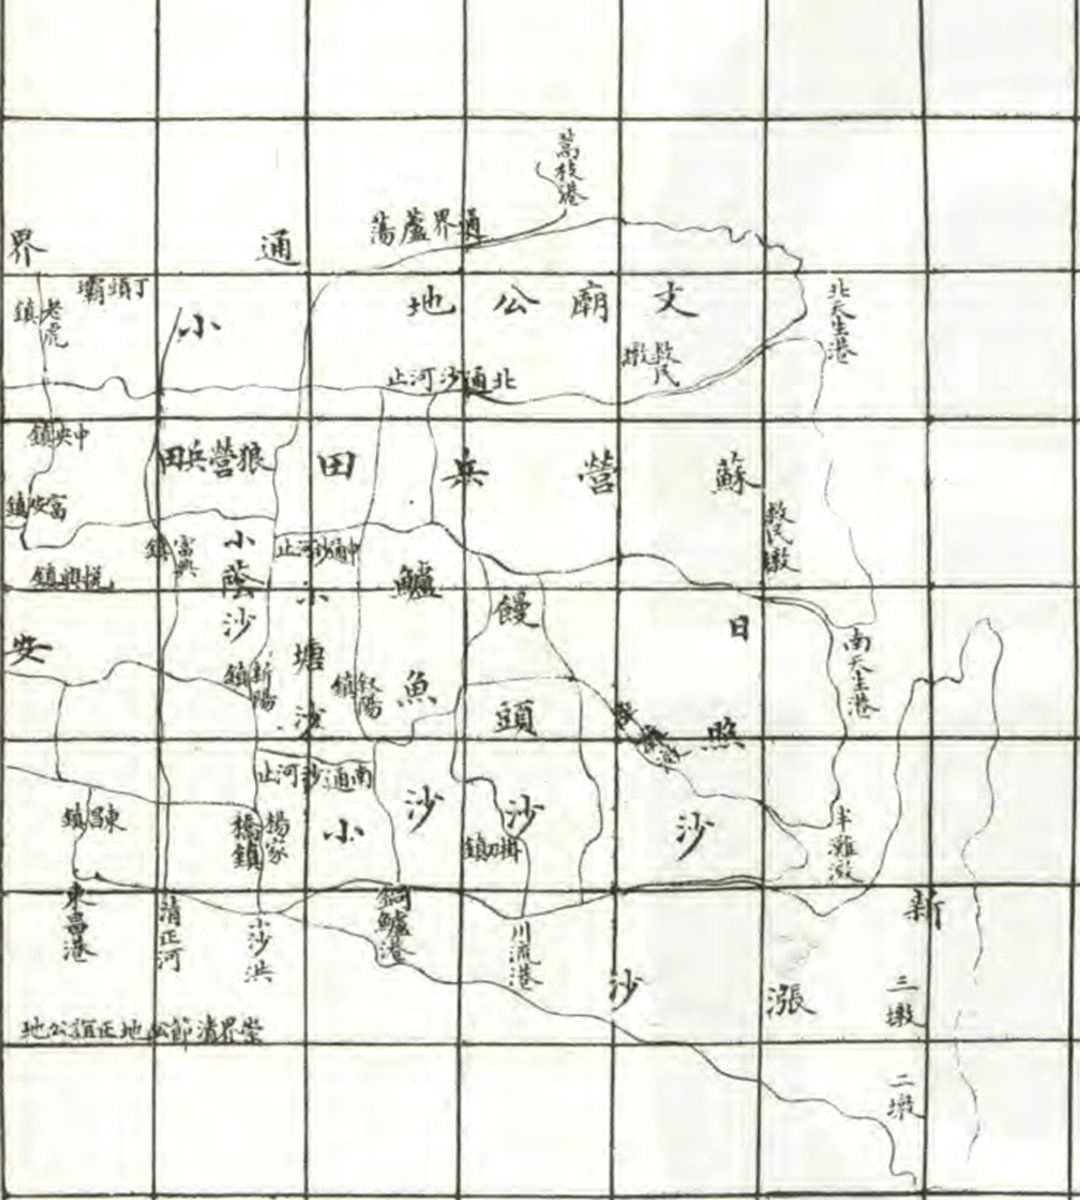 蒿枝港
通界蘆蕩
通界
丁頭壩
老虎鎮
小
丈廟公地
北天生港
救民墩
北通沙河止
中央鎮
狼營兵田
蘇營兵田
富安鎮
救民墩
富興鎮
小蔭沙
中通沙河止
小塘沙
鱸魚沙
饅頭沙
日照沙
安
南天生港
新陽鎮
南通沙河止
東昌鎮
楊家橋鎮
小
半灘墩
東昌港
清正河
小沙洪
銅鱸港
川流港
新漲沙
三墩
二墩
崇界清節公地正誼公地